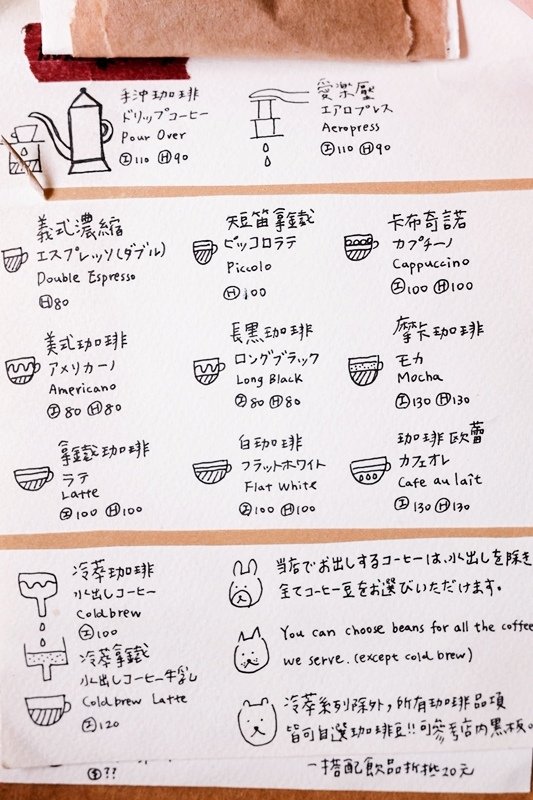 手沖珈琲
ドリップコーヒー
Pour Over
Ⓘ110 Ⓗ90
愛樂壓
エアロプレス
Aeropress
Ⓘ110 Ⓗ90
義式濃縮
エスプレッソ(ダブル)
Double Espresso
Ⓗ80
短笛拿鐵
ピッコロラテ
Piccolo
Ⓗ100
卡布奇諾
カプチーノ
Cappuccino
Ⓘ100 Ⓗ100
美式珈琲
アメリカーノ
Americano
Ⓘ80 Ⓗ80
長黒珈琲
ロングブラック
Long Black
Ⓘ80 Ⓗ80
摩卡珈琲
モカ
Mocha
Ⓘ130 Ⓗ130
拿鐵珈琲
ラテ
Latte
Ⓘ100 Ⓗ100
白珈琲
フラットホワイト
Flat White
Ⓘ100 Ⓗ100
珈琲歐蕾
カフェオレ
Cafe au lait
Ⓘ130 Ⓗ130
冷萃珈琲
水出しコーヒー
Coldbrew
Ⓘ100
冷萃拿鐵
水出しコーヒー牛乳
Coldbrew Latte
Ⓘ120
当店でお出しするコーヒーは、水出しを除き
全てコーヒー豆をお選びいただけます。
You can choose beans for all the coffee
we serve. (except cold brew)
冷萃系列除外，所有珈琲品項
皆可自選珈琲豆!! 可參考店內黑板。
??
搭配飲品折抵20元